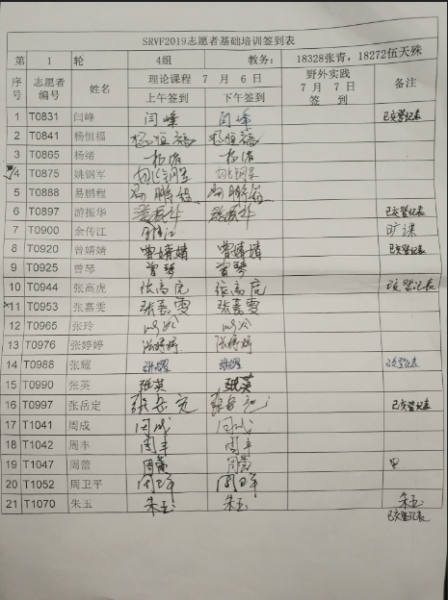 SRVF2019志愿者基础培训签到表
第 1 轮 4组 教务: 18328张青, 18272伍天殊
序号 志愿者编号 姓名 理论课程 7 月 6 日 野外实践 7 月 7 日 签 到 备注
上午签到 下午签到
1 T0831 闫峰 闫峰 闫峰 已交登记表
2 T0841 杨恒福 杨恒福 杨恒福
3 T0865 杨绪 杨绪 杨绪
4 T0875 姚钢军 姚钢军 姚钢军
5 T0888 易鹏程 易鹏程 易鹏程
6 T0897 游振华 游振华 游振华 已交登记表
7 T0900 余传江 余传江 旷课
8 T0920 曾婧婧 曾婧婧 曾婧婧 已交登记表
9 T0925 曾琴 曾琴 曾琴
10 T0944 张高虎 张高虎 张高虎 已交登记表
11 T0953 张嘉雯 张嘉雯 张嘉雯
12 T0965 张玲
13 T0976 张婷婷 张婷婷 张婷婷
14 T0988 张耀 张耀 张耀 已交登记表
15 T0990 张英 张英 张英
16 T0997 张岳定 张岳定 张岳定 已交登记表
17 T1041 周成 周成 周成
18 T1042 周丰 周丰 周丰
19 T1047 周蕾 周蕾 周蕾
20 T1052 周卫平 周卫平 周卫平
21 T1070 朱玉 朱玉 朱玉 朱玉
已交登记表